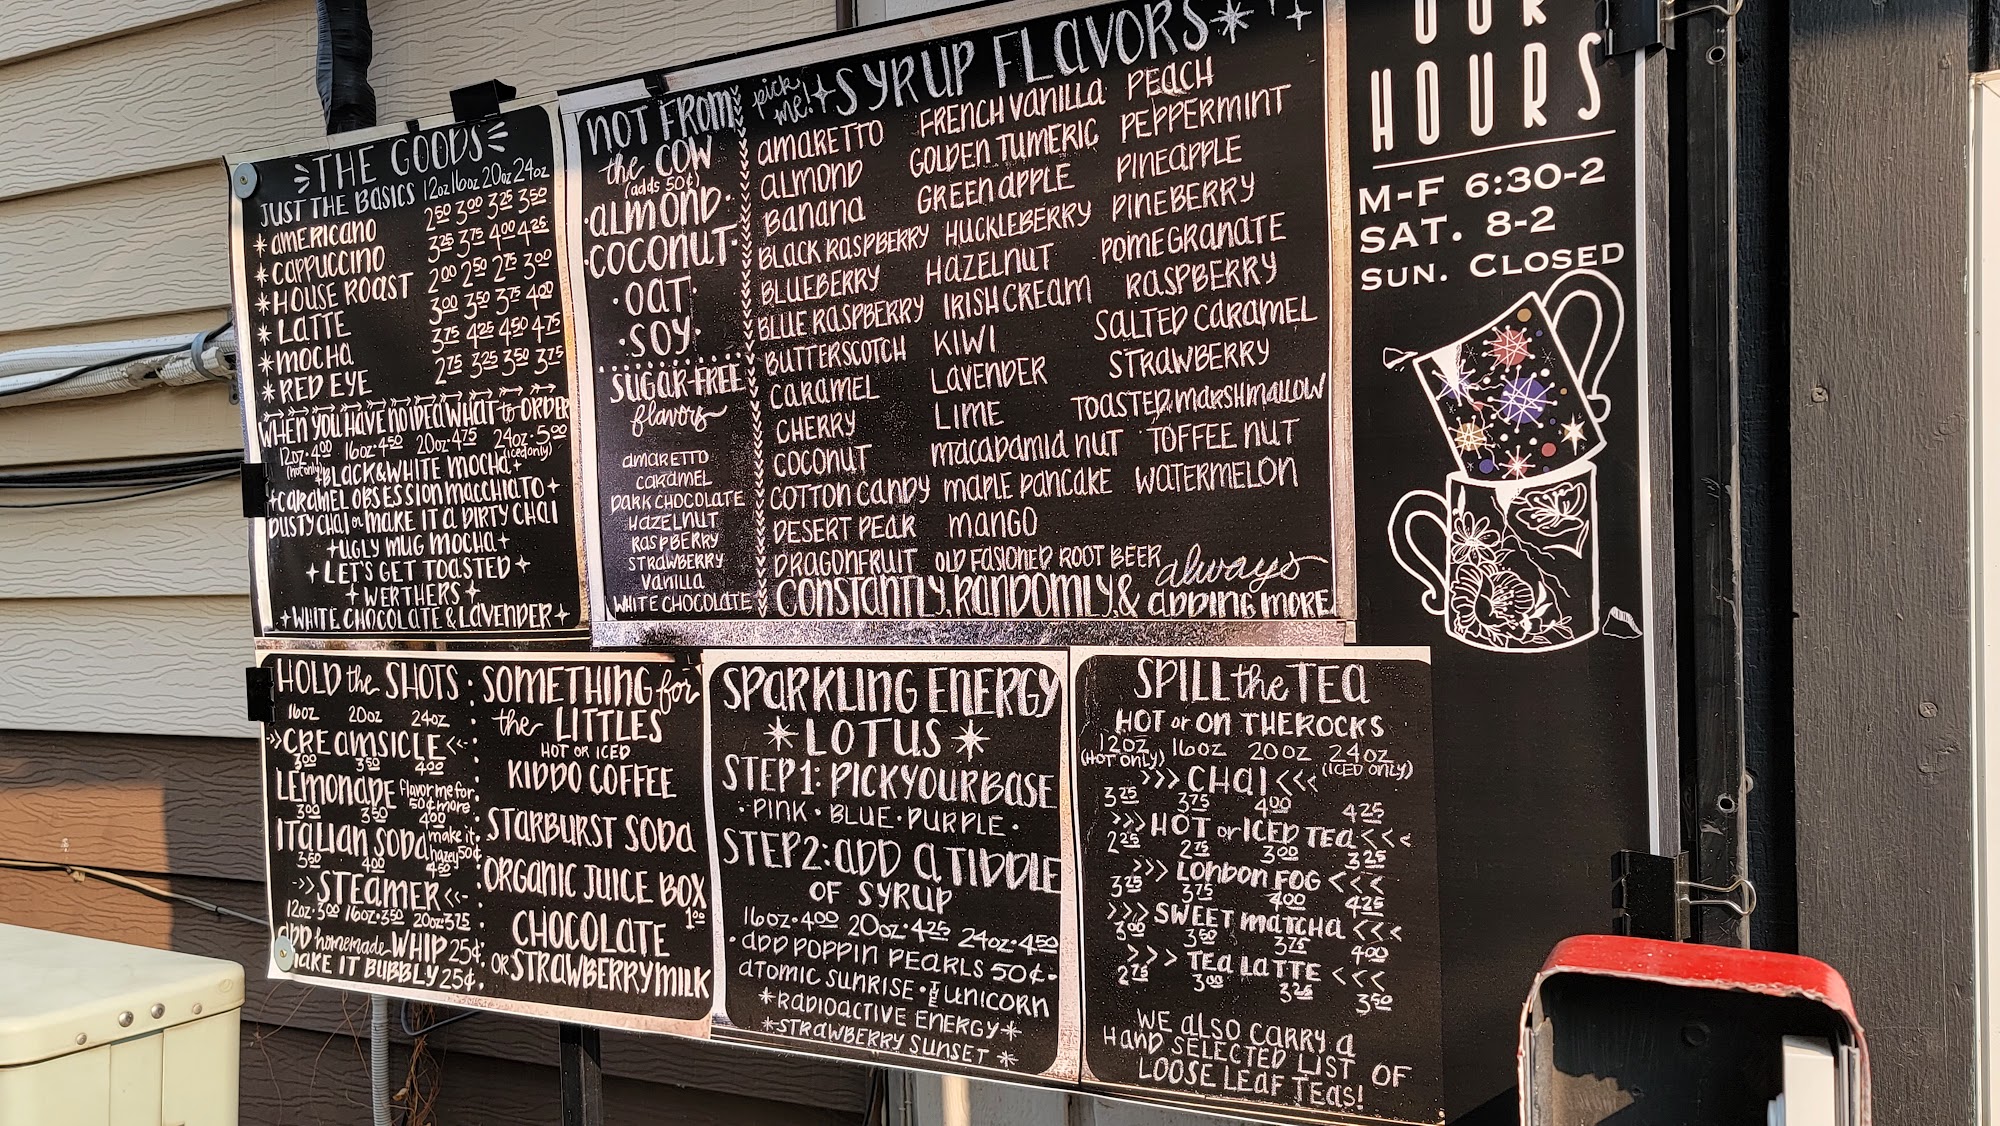 THE GOODS
JUST THE BASICS 12oz 16oz 20oz 24oz
* AMERICANO 2 50 3 00 3 25 3 50
* CAPPUCCINO 3 25 3 75 4 00 4 25
* HOUSE ROAST 2 00 2 50 2 75 3 00
* LATTE 3 00 3 50 3 75 4 00
* MOCHA 3 75 4 25 4 50 4 75
* RED EYE 2 75 3 25 3 50 3 75
WHEN YOU HAVE NO IDEA WHAT to ORDER
12oz·4 00 16oz·4 50 20oz·4 75 24oz·5 00
(hot only) (iced only)
BLACK & WHITE MOCHA
CARAMEL OBSESSION MACCHIATO
DUSTY CHAI or MAKE IT A DIRTY CHAI
UGLY MUG MOCHA
LET'S GET TOASTED
WERTHERS
WHITE CHOCOLATE & LAVENDER
NOT FROM
the COW
(adds 50¢)
·ALMOND·
·COCONUT·
·OAT·
·SOY·
SUGAR-FREE
flavors
AMARETTO
CARAMEL
DARK CHOCOLATE
HAZELNUT
RASPBERRY
STRAWBERRY
VANILLA
WHITE CHOCOLATE
pick me! SYRUP FLAVORS
AMARETTO
ALMOND
BANANA
BLACK RASPBERRY
BLUEBERRY
BLUE RASPBERRY
BUTTERSCOTCH
CARAMEL
CHERRY
COCONUT
COTTON CANDY
DESERT PEAR
DRAGONFRUIT
FRENCH VANILLA
GOLDEN TUMERIC
GREEN APPLE
HUCKLEBERRY
HAZELNUT
IRISH CREAM
KIWI
LAVENDER
LIME
MACADAMIA NUT
MAPLE PANCAKE
MANGO
OLD FASIONED ROOT BEER
PEACH
PEPPERMINT
PINEAPPLE
PINEBERRY
POMEGRANATE
RASPBERRY
SALTED CARAMEL
STRAWBERRY
TOASTED MARSHMALLOW
TOFFEE NUT
WATERMELON
CONSTANTLY, RANDOMLY, & always ADDING MORE
OUR
HOURS
M-F 6:30-2
SAT. 8-2
SUN. CLOSED
HOLD the SHOTS
16oz 20oz 24oz
CREAMSICLE
3 00 3 50 4 00
LEMONADE flavor me for 50¢ more
3 00 3 50 4 00
ITALIAN SODA make it hazey 50¢
3 50 4 00 4 50
STEAMER
12oz·3 00 16oz·3 50 20oz·3 75
ADD homemade WHIP 25¢
MAKE IT BUBBLY 25¢
SOMETHING for
the LITTLES
HOT OR ICED
KIDDO COFFEE
STARBURST SODA
ORGANIC JUICE BOX
1 00
CHOCOLATE
OR STRAWBERRY MILK
SPARKLING ENERGY
* LOTUS *
STEP 1: PICK YOUR BASE
· PINK · BLUE · PURPLE ·
STEP 2: ADD A TIDDLE
OF SYRUP
16oz·4 00 20oz·4 25 24oz·4 50
· ADD POPPIN PEARLS 50¢·
ATOMIC SUNRISE · THE UNICORN
*RADIOACTIVE ENERGY*
*STRAWBERRY SUNSET *
SPILL the TEA
HOT or ON THE ROCKS
12OZ 16OZ 20OZ 24OZ
(HOT ONLY) (ICED ONLY)
>>> CHAI <<<
3 25 3 75 4 00 4 25
>>> HOT or ICED TEA <<<
2 25 2 75 3 00 3 25
>>> LONDON FOG <<<
3 25 3 75 4 00 4 25
>>> SWEET MATCHA <<<
3 00 3 50 3 75 4 00
>>> TEA LATTE <<<
2 75 3 00 3 25 3 50
WE ALSO CARRY A
HAND SELECTED LIST OF
LOOSE LEAF TEAS!